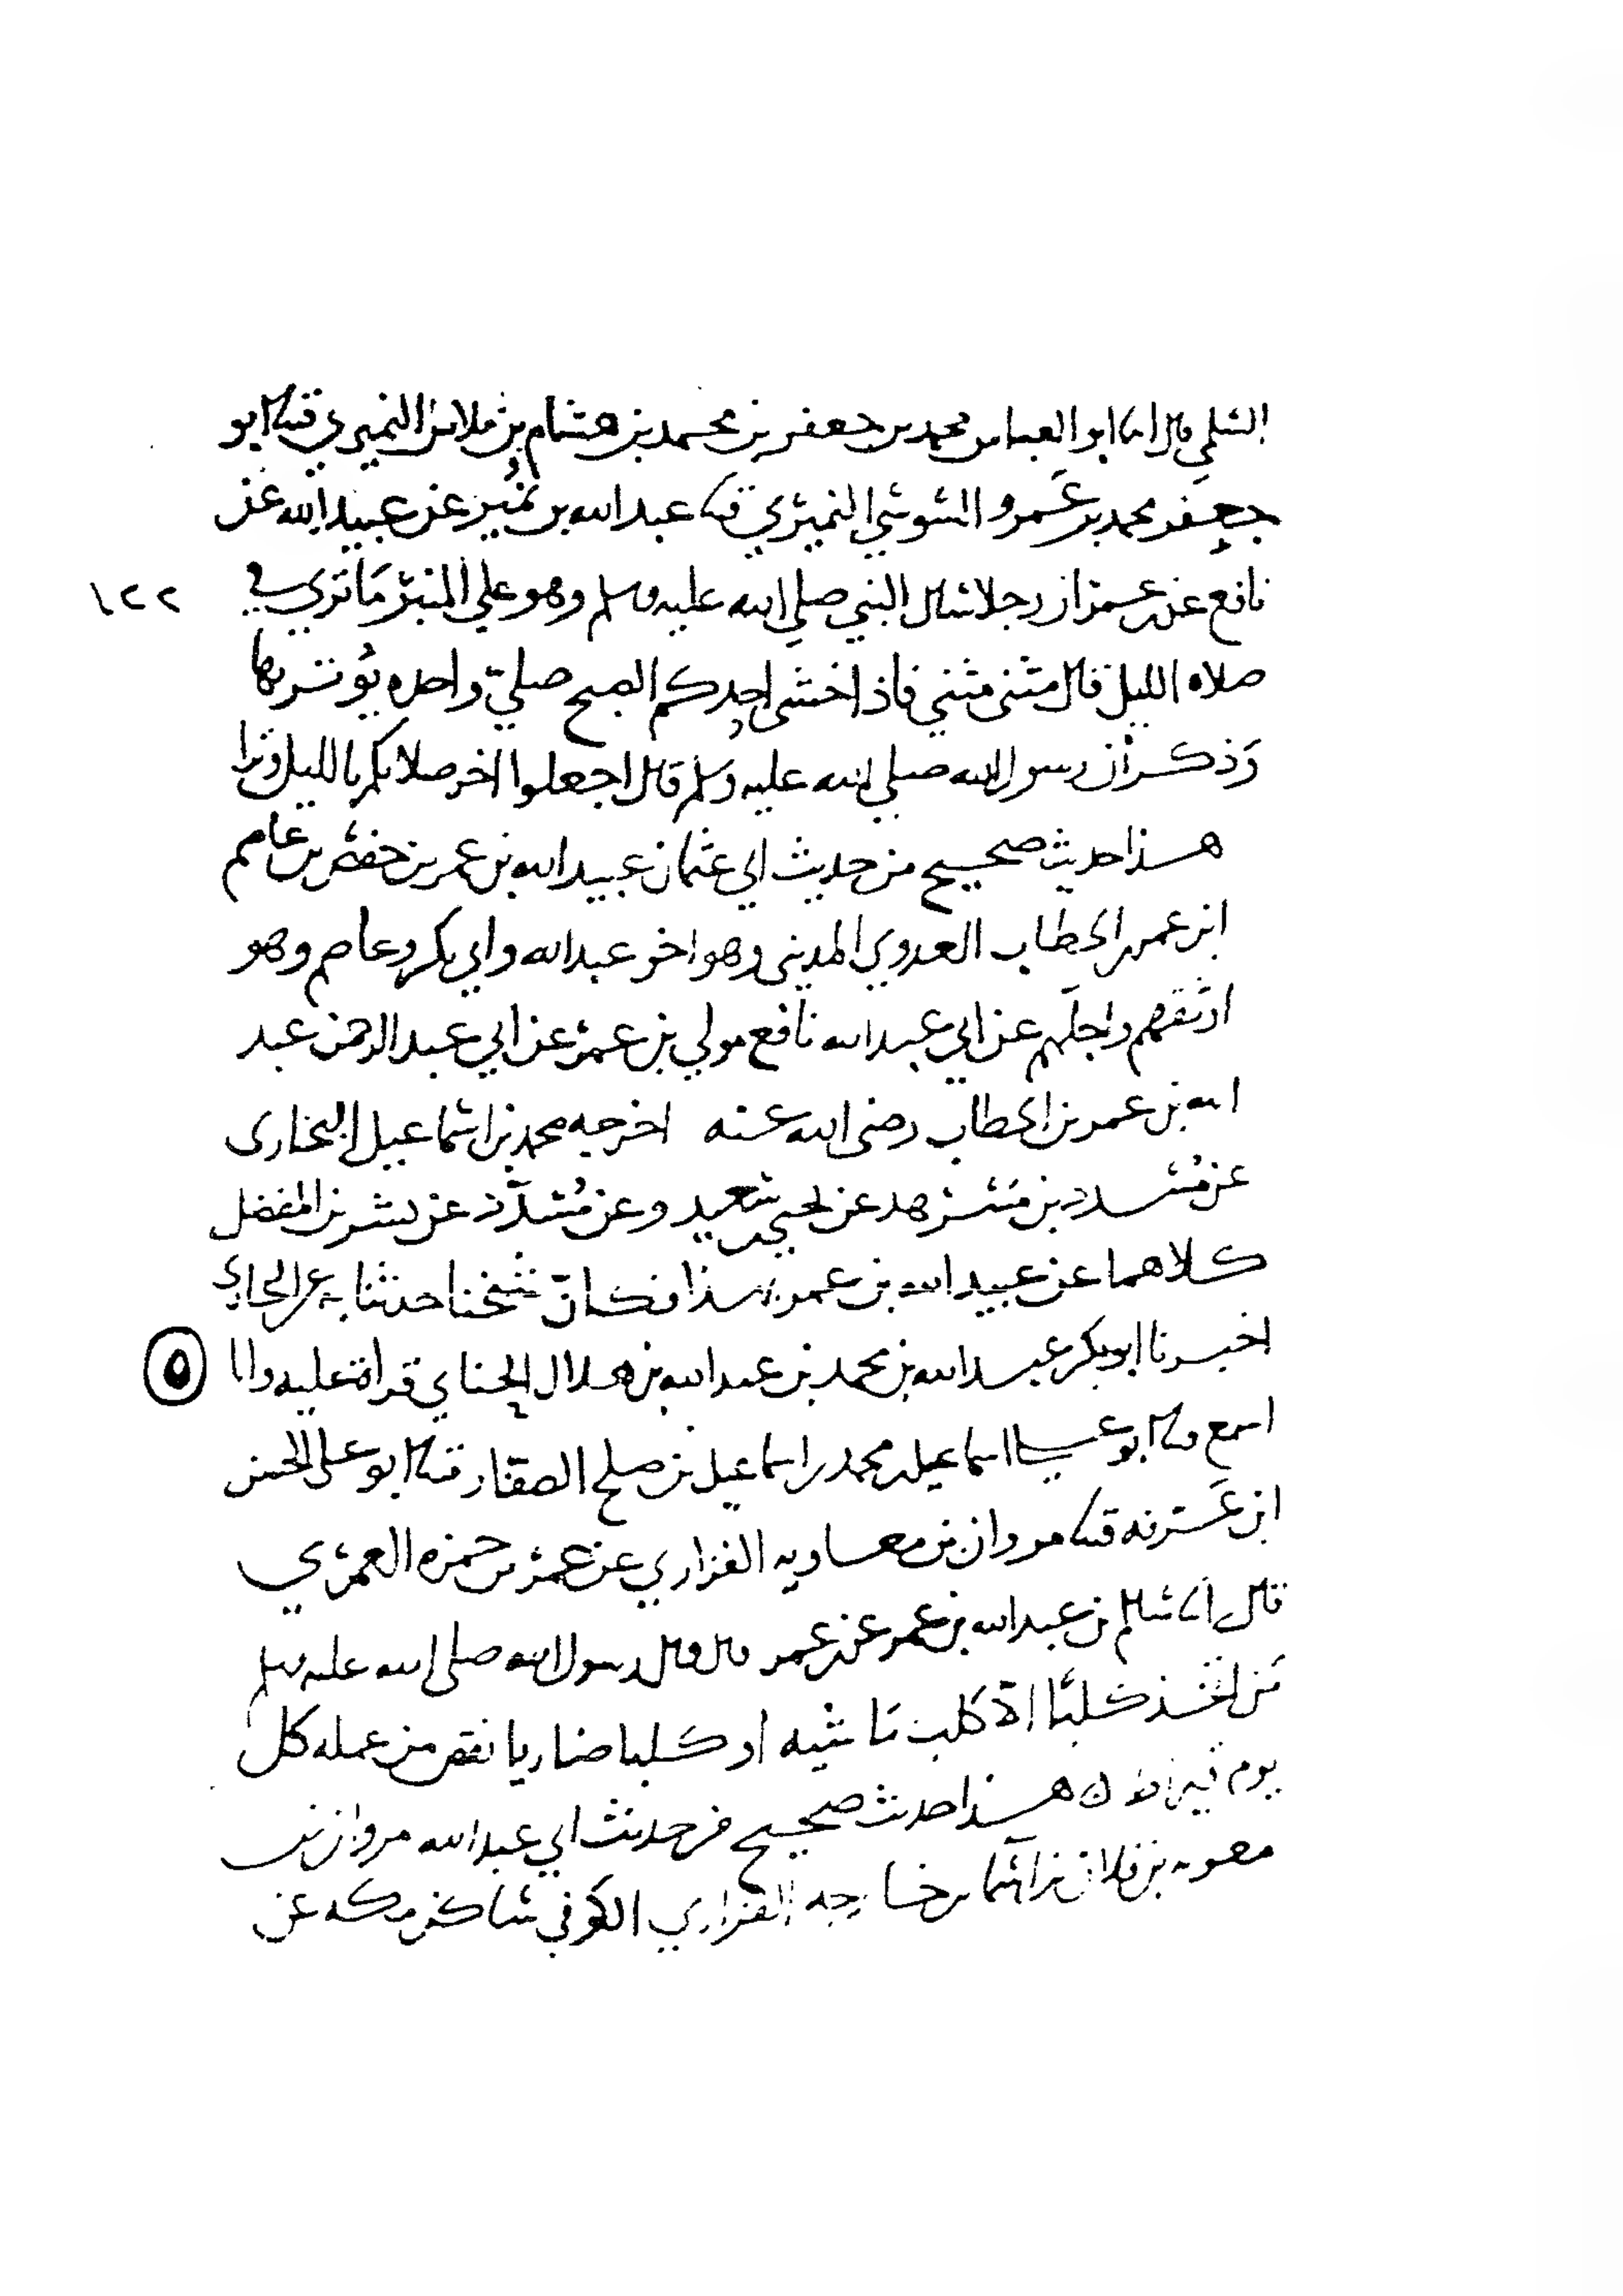 السلمي قال انا ابو العباس محمد بن جعفر بن محمد بن هشام بن ملاس النميري قثنا ابو
جعفر محمد بن عمرو السوسي النميري قثنا عبد الله بن نمير عن عبيد الله عن
نافع عن بن عمر ان رجلا سال النبي صلي الله عليه وسلم وهو علي المنبر ما تري في
١٢٢
صلاه الليل قال مثنى مثني فاذا خشى احدكم الصبح صلي واحده يوتر بها
وذكر ان رسول الله صلي الله عليه وسلم قال اجعلوا اخر صلاتكم بالليل وترا
هذا حديث صحيح من حديث ابي عثمان عبيد الله بن عمر بن حفص بن عاصم
ابن عمر بن الخطاب العدوي المديني وهو اخو عبد الله وابي بكر وعاصم وهو
اوثقهم واجلهم عن ابي عبد الله نافع مولي بن عمر عن ابي عبد الرحمن عبد
الله بن عمر بن الخطاب رضي الله عنه اخرجه محمد بن اسماعيل البخاري
عن مسدد بن مسرهد عن يحيى بن سعيد وعن مسدد عن بشر بن المفضل
كلاهما عن عبيد الله بن عمر بهذا فكان شيخنا حدثنا به عن البخاري
اخبرنا ابو بكر عبد الله بن محمد بن عبد الله بن هلال الحناي قراة عليه وانا
٥
اسمع قثنا ابو علي اسماعيل بن محمد بن اسماعيل بن صلح الصفار قثنا ابو على الحسن
ابن عرفه قثنا مروان بن معاويه الفزاري عن عمر بن حمزه العمري
قال انا سالم بن عبد الله بن عمر عن بن عمر قال قال رسول الله صلى الله عليه وسلم
من اتخذ كلبا الا كلب ماشيه او كلبا ضاريا نقص من عمله كل
يوم قيراط ٥ هذا حديث صحيح من حديث ابي عبد الله مروان بن
معويه بن فلان بن اسما بن خارجه الفزاري الكوفي ساكن مكه عن